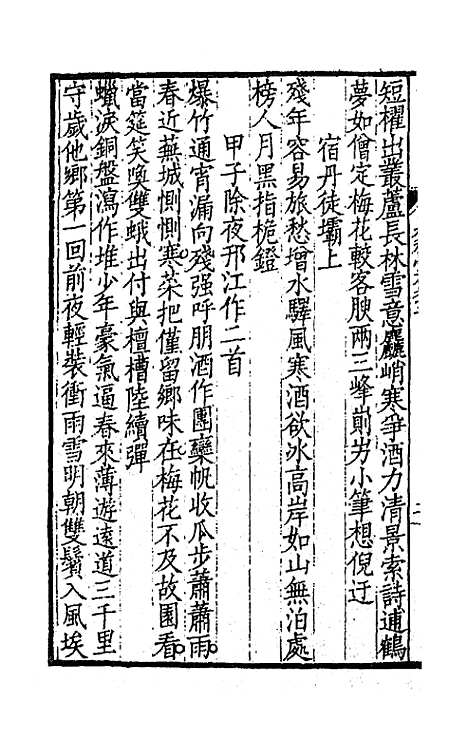 短櫂出叢蘆長林雪意麤峭寒爭酒力清景索詩逋鶴
夢如僧定梅花較客腴兩三峰崱屴小筆想倪迂
宿丹徒壩上
殘年容易旅愁增水驛風寒酒欲冰高岸如山無泊處
榜人月黑指桅鐙
甲子除夜邗江作二首
爆竹通宵漏向殘强呼朋酒作團欒帆收瓜步蕭蕭雨
春近蕪城惻惻寒菜把僅留鄉味在梅花不及故園看
當筵笑喚雙蛾出付與檀槽陸續彈
蠟淚銅盤瀉作堆少年豪氣逼春來薄遊遠道三千里
守歲他鄉第一回前夜輕裝衝雨雪明朝雙鬢入風埃